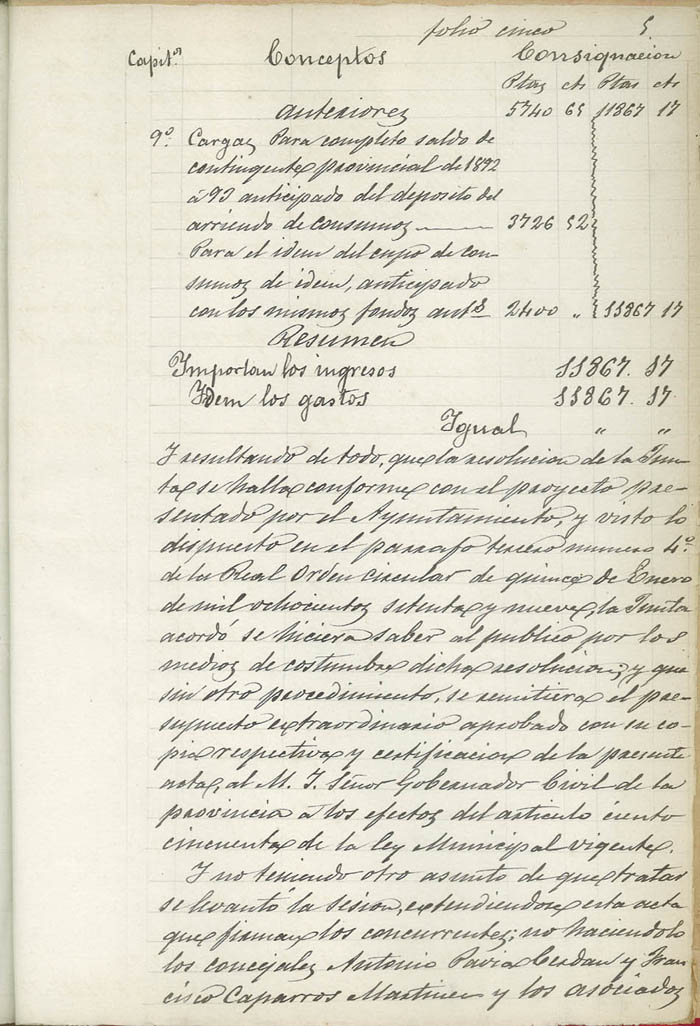 folio cinco 5.
Capit.os Conceptos Consignacion
Ptas cts Ptas cts
anteriores 5740 65 11867 17
9º Cargas Para completo saldo de
contingente provincial de 1892
á 93 anticipado del deposito del
arriendo de consumos 3726 52
Para el idem del cupo de con-
sumos de idem, anticipado
con los mismos fondos ants 2400 „ 11867 17
Resumen
Importan los ingresos 11867. 17
Idem los gastos 11867. 17
Igual „ „
Y resultando de todo, que la resolucion de la Jun-
ta se halla conforme con el proyecto pre-
sentado por el Ayuntamiento, y visto lo
dispuesto en el parrafo tercero numero 4º
de la Real Orden circular de quince de Enero
de mil ochocientos setenta y nueve, la Junta
acordó se hiciera saber al publico por los
medios de costumbre dicha resolucion, y que
sin otro procedimiento, se remitiera el pre-
supuesto extraordinario aprobado con su co-
pia respectiva y certificacion de la presente
acta, al M. I. Señor Gobernador Civil de la
provincia á los efectos del articulo ciento
cincuenta de la ley Municipal vigente.
Y no teniendo otro asunto de que tratar
se levantó la sesion, extendiendose esta acta
que firman los concurrentes; no haciendolo
los concejales Antonio Pavia Cerdan y Fran
cisco Caparros Martinez y los asociados